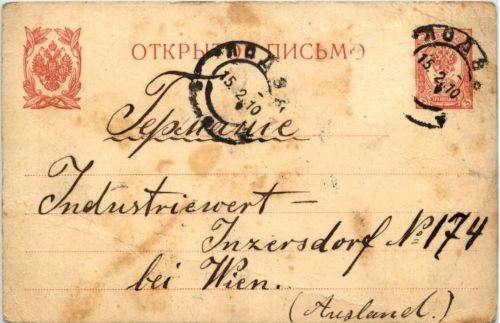 ОТКРЫТОЕ ПИСЬМО
ЛОДЗЬ
15.2.10
ЛОДЗЬ
15.2.10
Германіе
Industriewert-
Inzersdorf No 174
bei Wien.
(Ausland.)